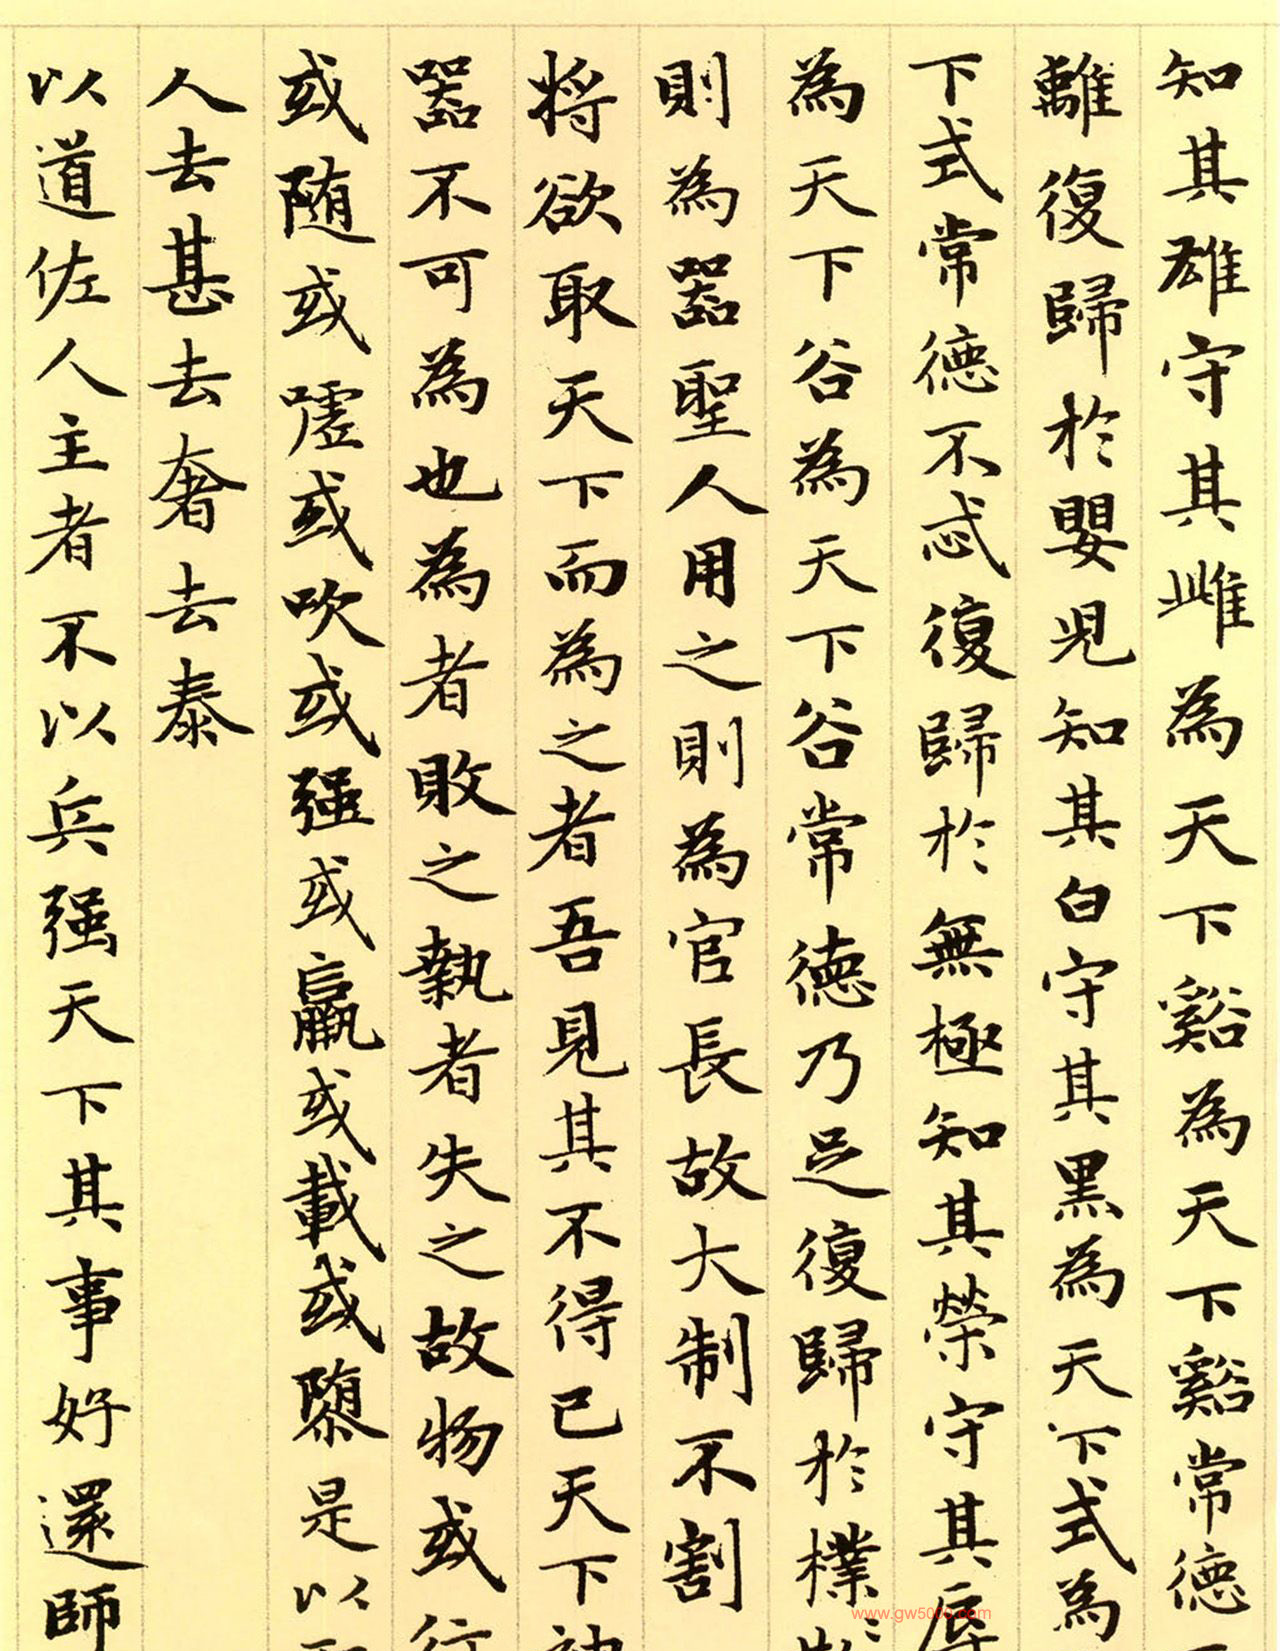 知其雄守其雌為天下谿為天下谿常德
離復歸於嬰兒知其白守其黑為天下式為
下式常德不忒復歸於無極知其榮守其辱
為天下谷為天下谷常德乃足復歸於樸
則為器聖人用之則為官長故大制不割
将欲取天下而為之者吾見其不得已天下神
器不可為也為者敗之執者失之故物或行
或随或嘘或吹或强或羸或載或隳是以
人去甚去奢去泰
以道佐人主者不以兵强天下其事好還師